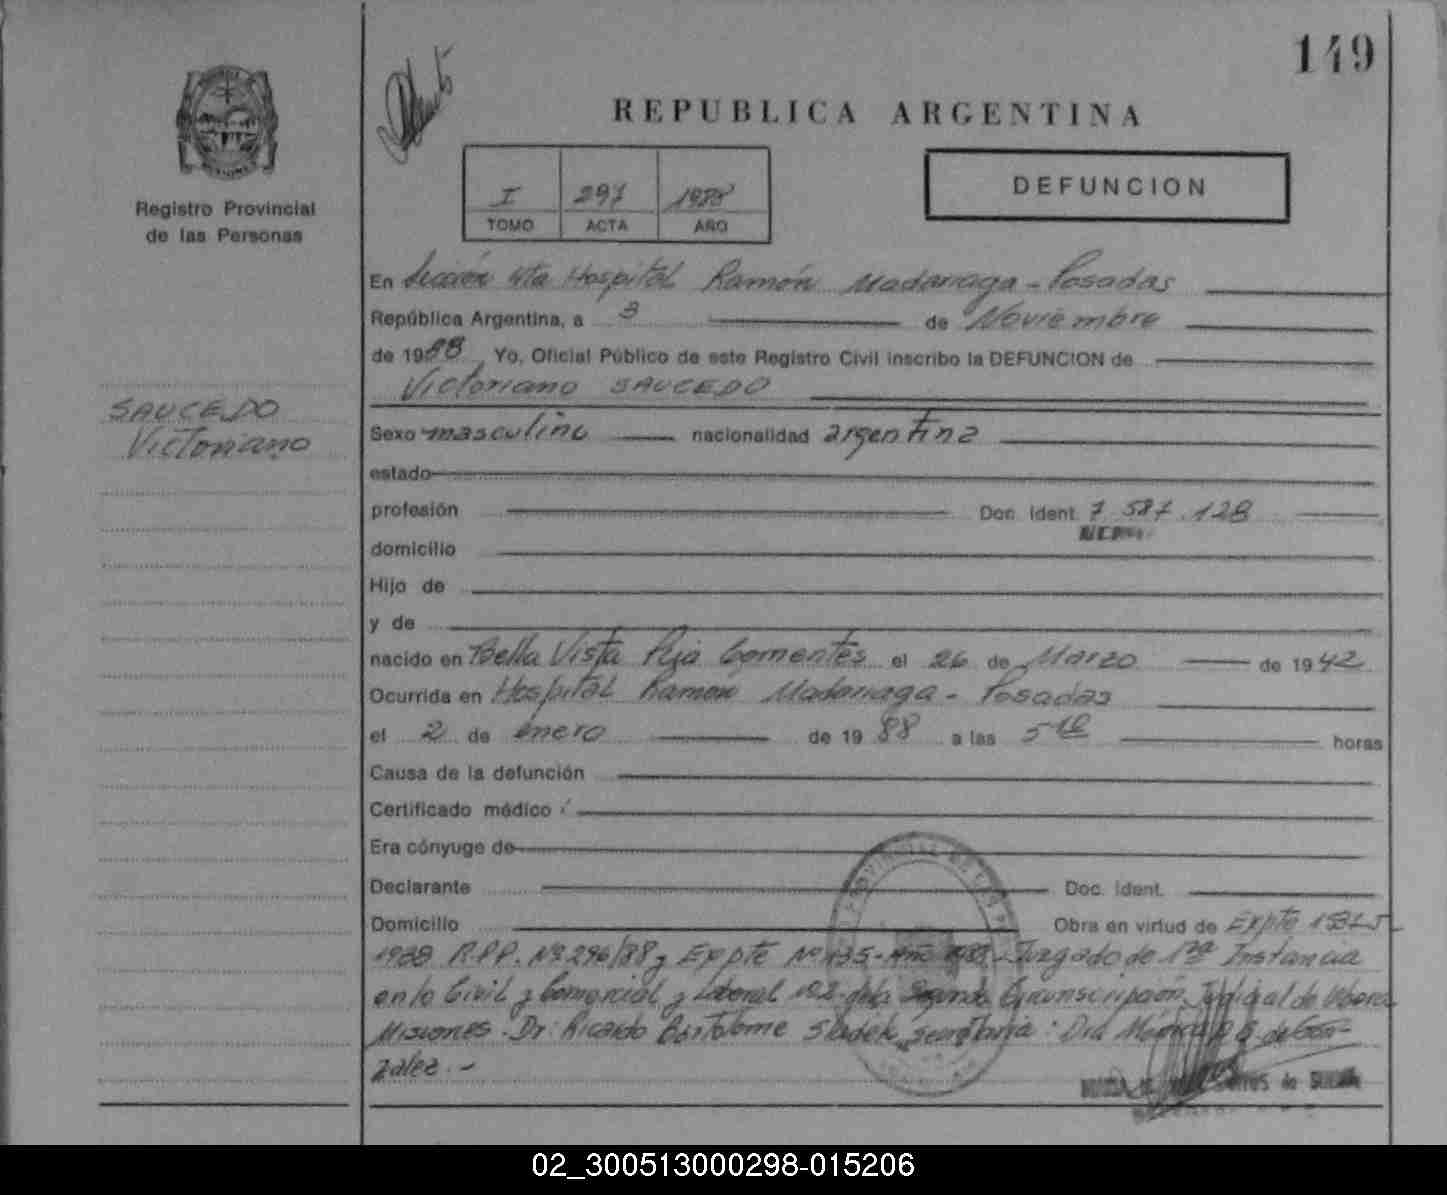 149
REPUBLICA ARGENTINA
DEFUNCION
I 297 1988
TOMO ACTA AÑO
Registro Provincial
de las Personas
SAUCEDO
Victoriano
En Sección 4ta Hospital Ramón Madariaga - Posadas
República Argentina, a 3 de Noviembre
de 1988 Yo, Oficial Público de este Registro Civil inscribo la DEFUNCION de
Victoriano SAUCEDO
Sexo masculino nacionalidad argentina
estado
profesión Doc. Ident. 7 587.128
domicilio
Hijo de
y de
nacido en Bella Vista Pcia Corrientes el 26 de Marzo de 1942
Ocurrida en Hospital Ramón Madariaga - Posadas
el 2 de enero de 1988 a las horas
Causa de la defunción
Certificado médico
Era cónyuge de
Declarante Doc. Ident.
Domicilio Obra en virtud de Expte
1988 R.P.P. Nº 296/88 y Expte Nº 135 - Año 1988 - Juzgado de 1ra Instancia
en lo Civil y Comercial y Laboral Nº 2 de la Segunda Circunscripción Judicial de Obera
Misiones - Dr. Ricardo Bartolome secretaria: Dra de Gon-
zalez. -
02_300513000298-015206